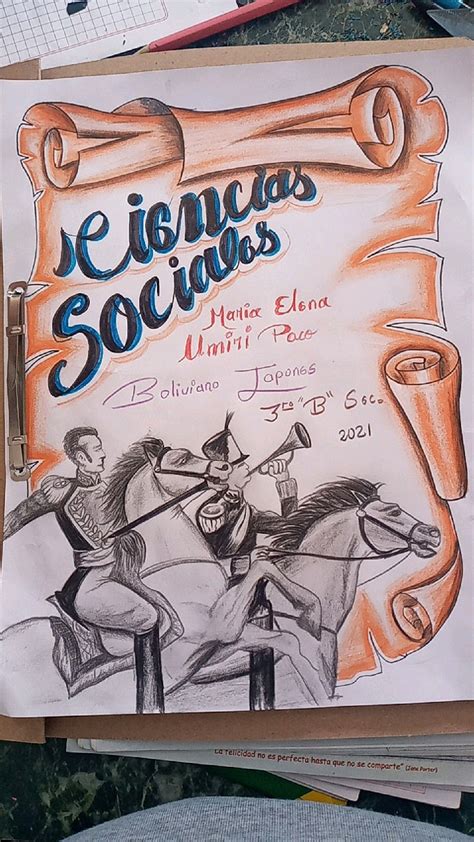 Ciencias
Sociales
Maria Elena
Umiri Paco
Boliviano Japones
3ro "B" Sec.
2021
"La felicidad no es perfecta hasta que no se comparte" (Jane Porter)